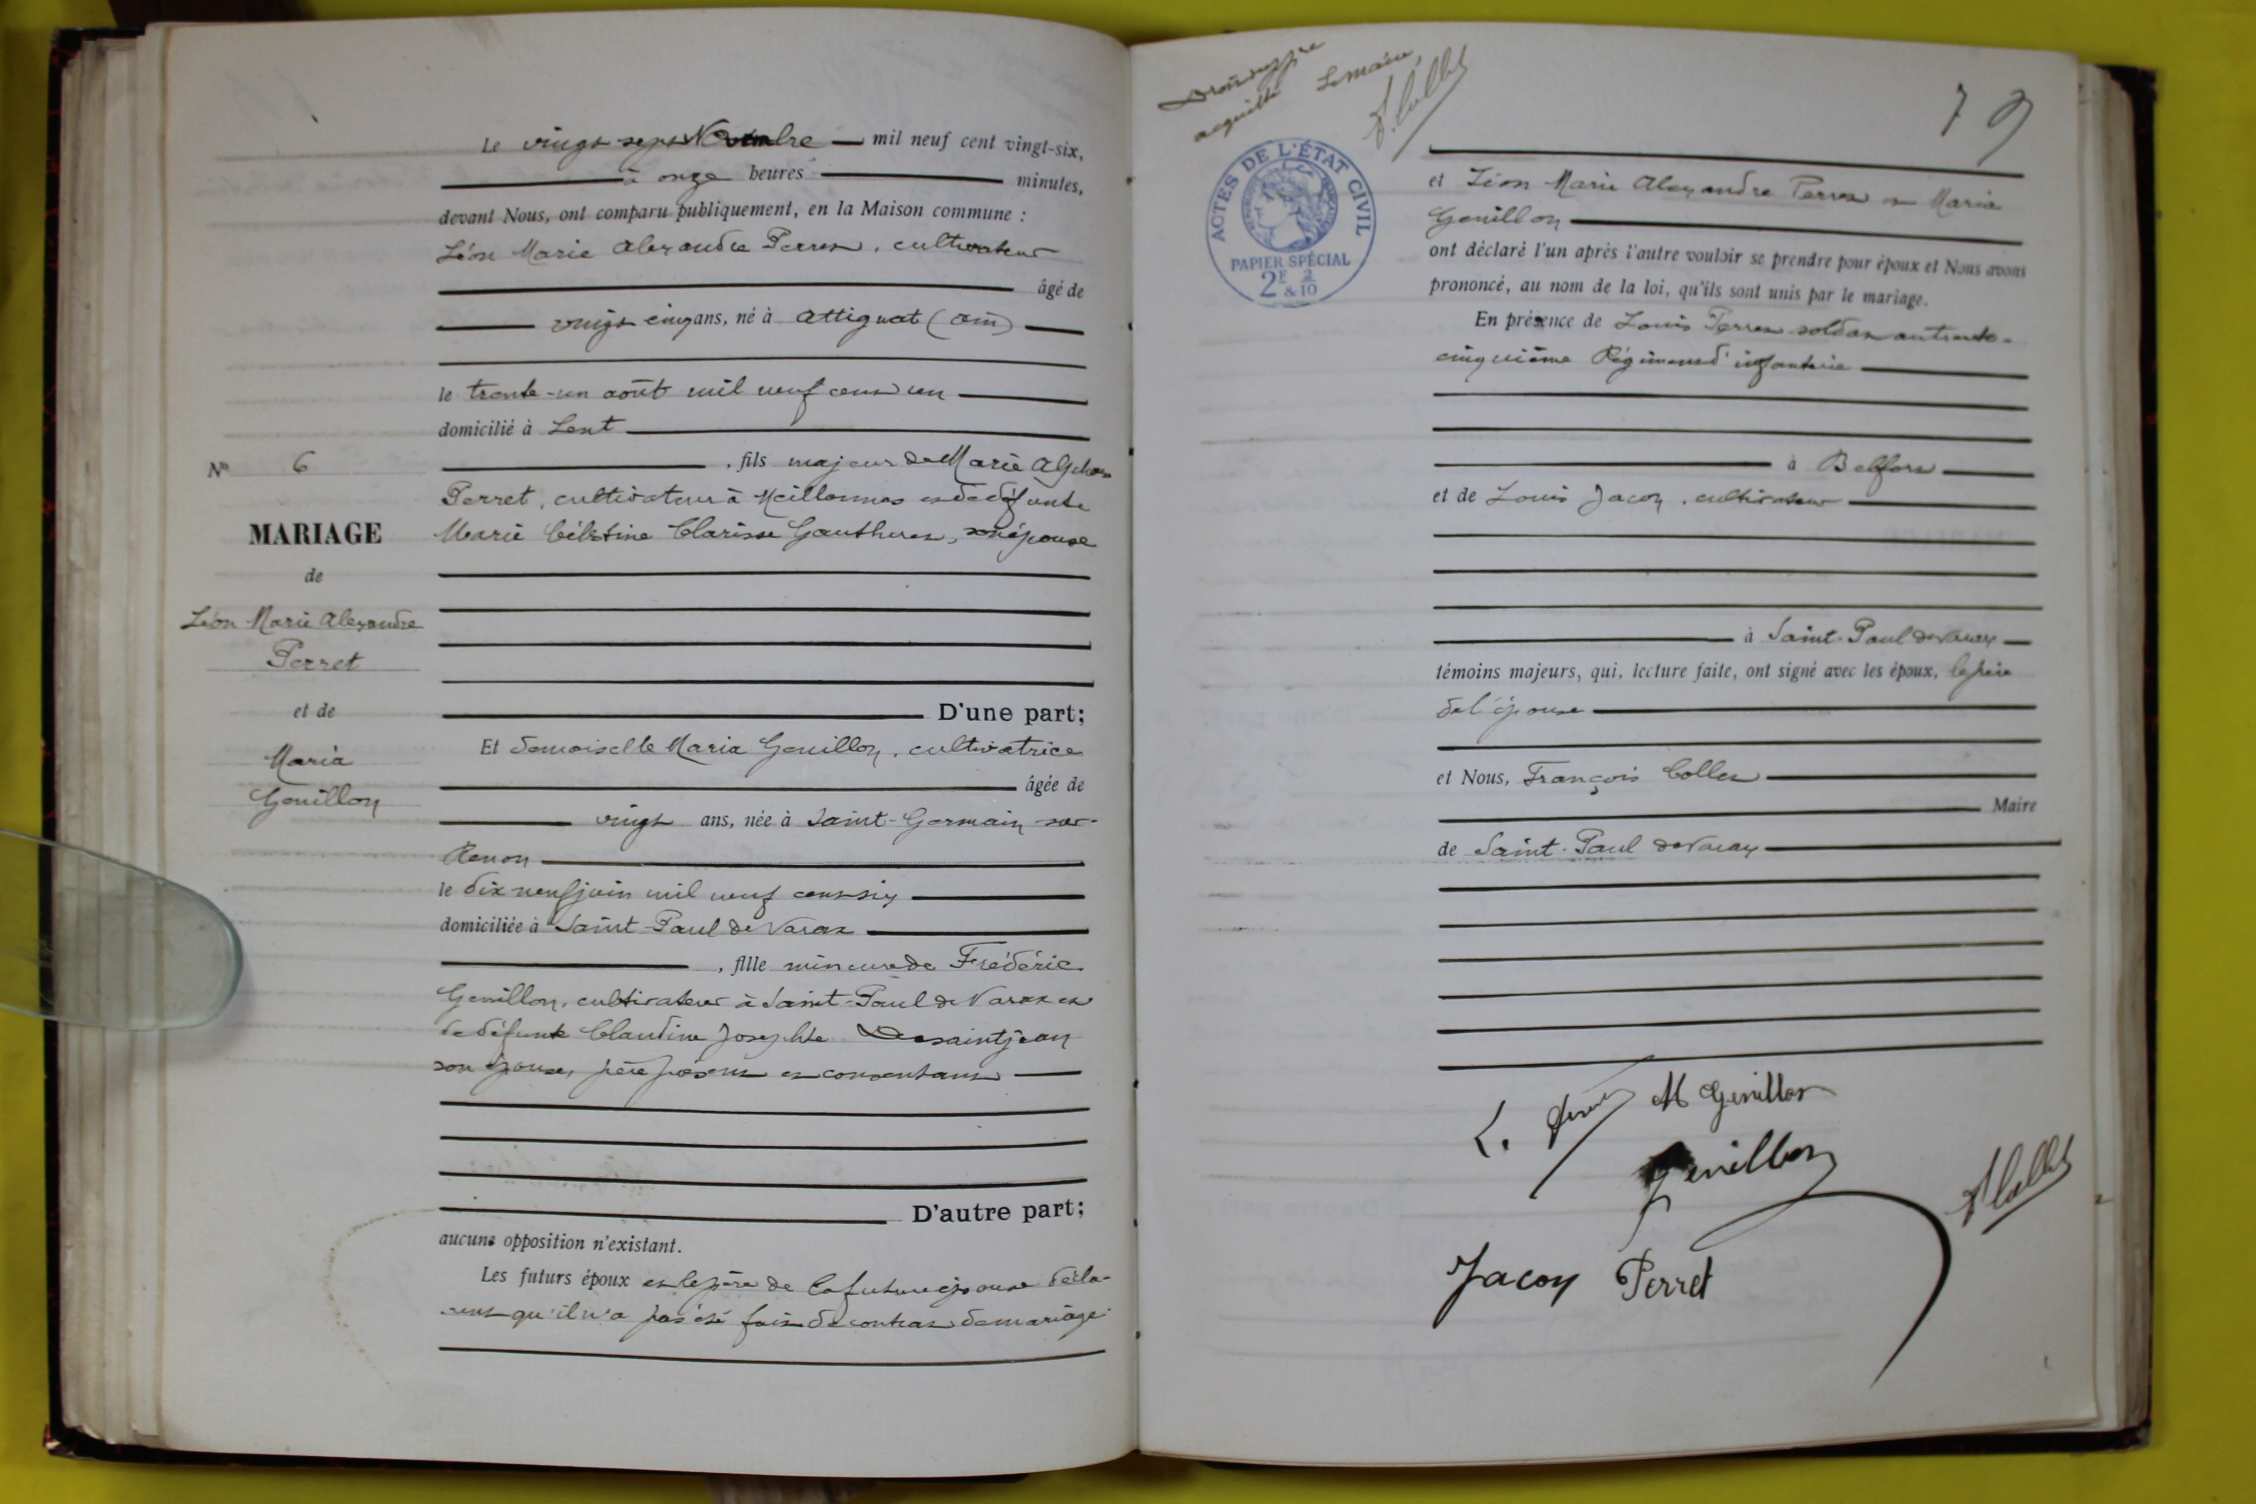 Le vingt sept Novembre mil neuf cent vingt-six,
à onze heures minutes,
devant Nous, ont comparu publiquement, en la Maison commune :
Léon Marie Alexandre Perret, cultivateur
âgé de
vingt cinq ans, né à Attignat (Ain)
le trente-un août mil neuf cent un
domicilié à Lent
, fils majeur de Marie Alphonse
Perret, cultivateur à Meillonnas et de défunte
Marie Célestine Clarisse Gautheret, son épouse
D'une part;
Et demoiselle Maria Genillon, cultivatrice
âgée de
vingt ans, née à Saint-Germain-sur-
Renon
le dix neuf juin mil neuf cent six
domiciliée à Saint-Paul de Varax
, fille mineure de Frédéric
Genillon, cultivateur à Saint-Paul de Varax et
de défunte Claudine Josephte Desaintjean
son épouse, père présent et consentant
D'autre part;
aucune opposition n'existant.
Les futurs époux et le père de la future épouse décla-
rent qu'il n'a pas été fait de contrat de mariage.
N° 6
MARIAGE
de
Léon Marie Alexandre
Perret
et de
Maria
Genillon
acquitté Le Maire,
F. Collet
79
ACTES DE L'ÉTAT CIVIL
PAPIER SPÉCIAL
2F & 2/10
et Léon Marie Alexandre Perret et Maria
Genillon
ont déclaré l'un après l'autre vouloir se prendre pour époux et Nous avons
prononcé, au nom de la loi, qu'ils sont unis par le mariage.
En présence de Louis Perret soldat au trente-
cinquième Régiment d'infanterie
à Belfort
et de Louis Jacon, cultivateur
à Saint-Paul de Varax
témoins majeurs, qui, lecture faite, ont signé avec les époux, le père
de l'épouse
et Nous, François Collet
Maire
de Saint-Paul de Varax
L. Perret M Genillon
Genillon
F Collet
Jacon Perret